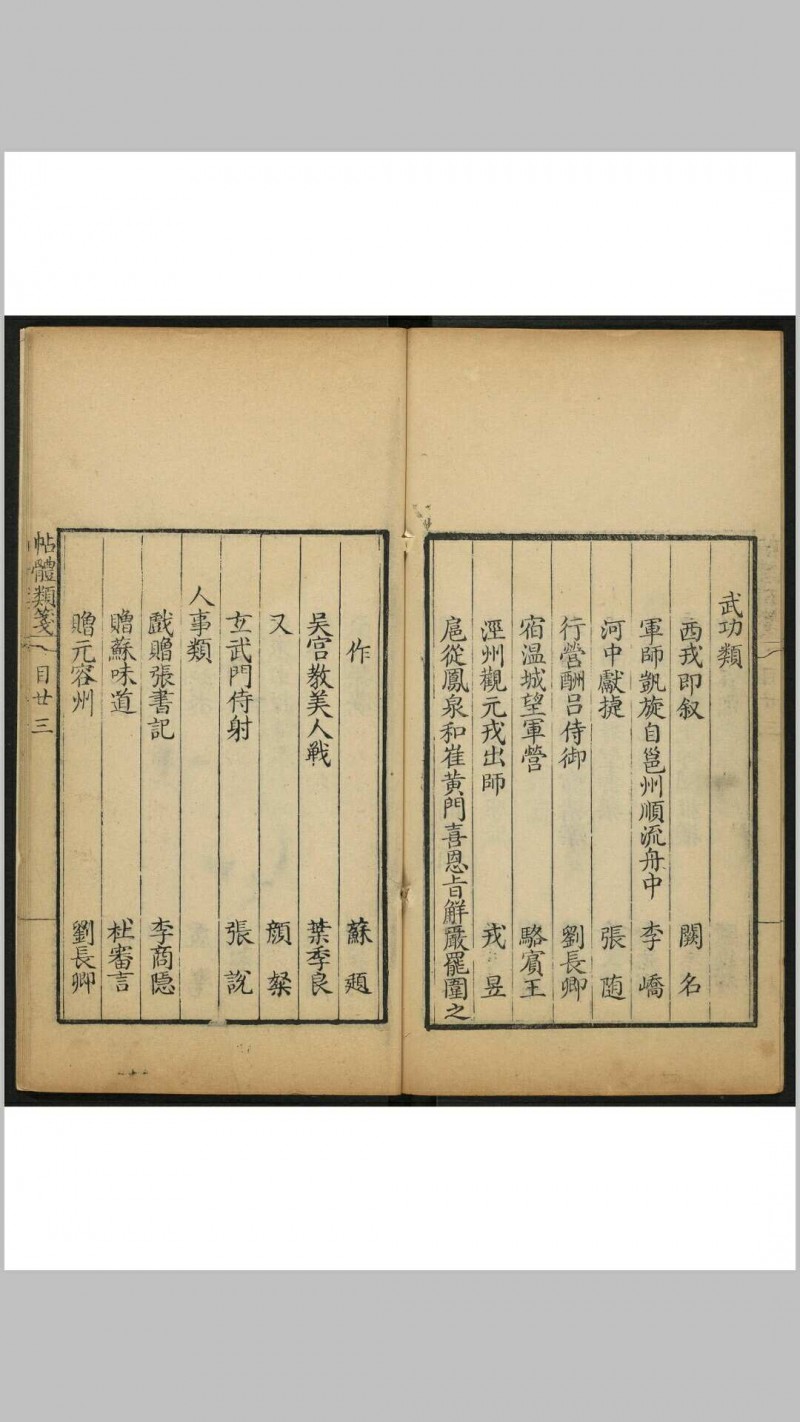 武功類
西戎即叙 闕名
軍師凱旋自邕州順流舟中 李嶠
河中獻捷 張随
行營酬吕侍御 劉長卿
宿温城望軍營 駱賓王
涇州觀元戎出師 戎昱
扈從鳳泉和崔黄門喜恩旨解嚴罷圍之
作 蘇頲
吴宫教美人戰 葉季良
又 顔粲
玄武門侍射 張説
人事類
戲贈張書記 李商隱
贈蘇味道 杜審言
贈元容州 劉長卿
帖體類箋 目廿三